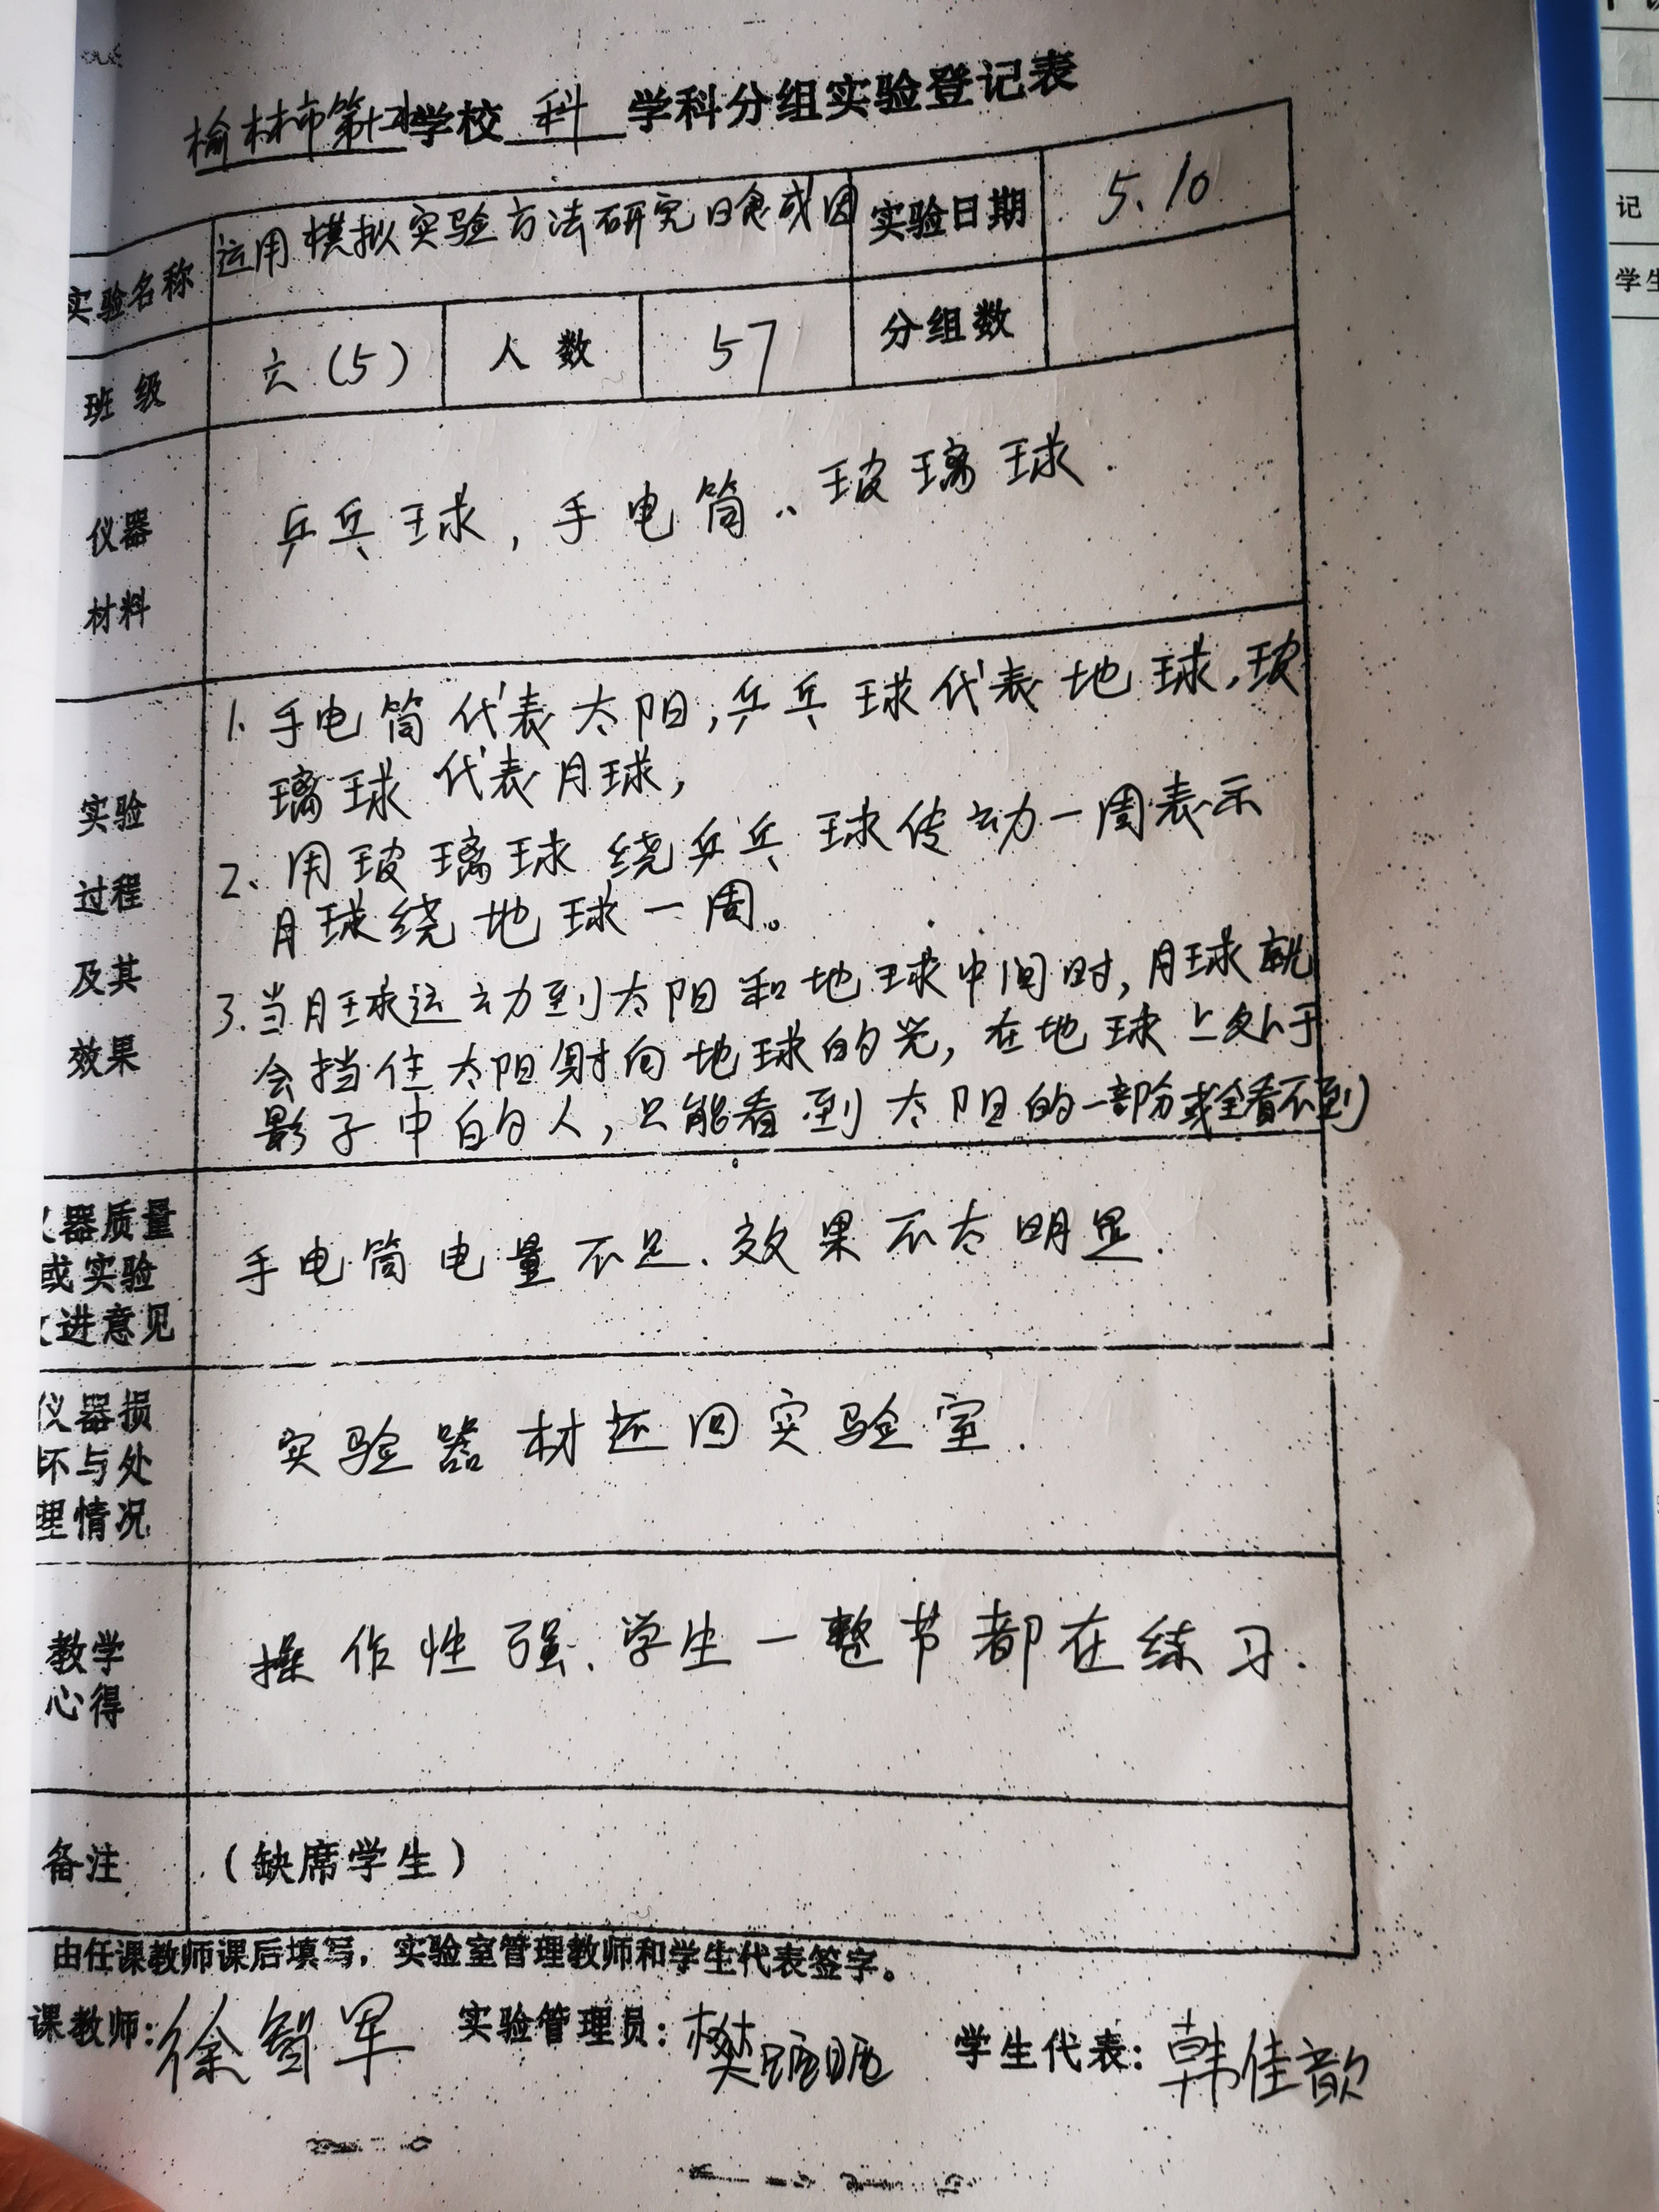 榆林市第十二学校 科 学科分组实验登记表
实验名称 运用模拟实验方法研究日食成因 实验日期 5.10
班 级 六(5) 人 数 57 分组数
仪器
材料
乒乓球,手电筒、玻璃球.
实验
过程
及其
效果
1. 手电筒代表太阳,乒乓球代表地球,玻
璃球代表月球,
2、用玻璃球绕乒乓球传动一周表示
月球绕地球一周。
3.当月球运动到太阳和地球中间时,月球就
会挡住太阳射向地球的光,在地球上处于
影子中的人,只能看到太阳的一部分或全看不到
器质量
或实验
进意见
手电筒电量不足.效果不太明显.
仪器损
坏与处
理情况
实验器材还回实验室.
教学
心得
操作性强、学生一整节都在练习.
备注 (缺席学生)
由任课教师课后填写,实验室管理教师和学生代表签字。
课教师:徐智军 实验管理员:樊 学生代表:韩佳歆
记
学生